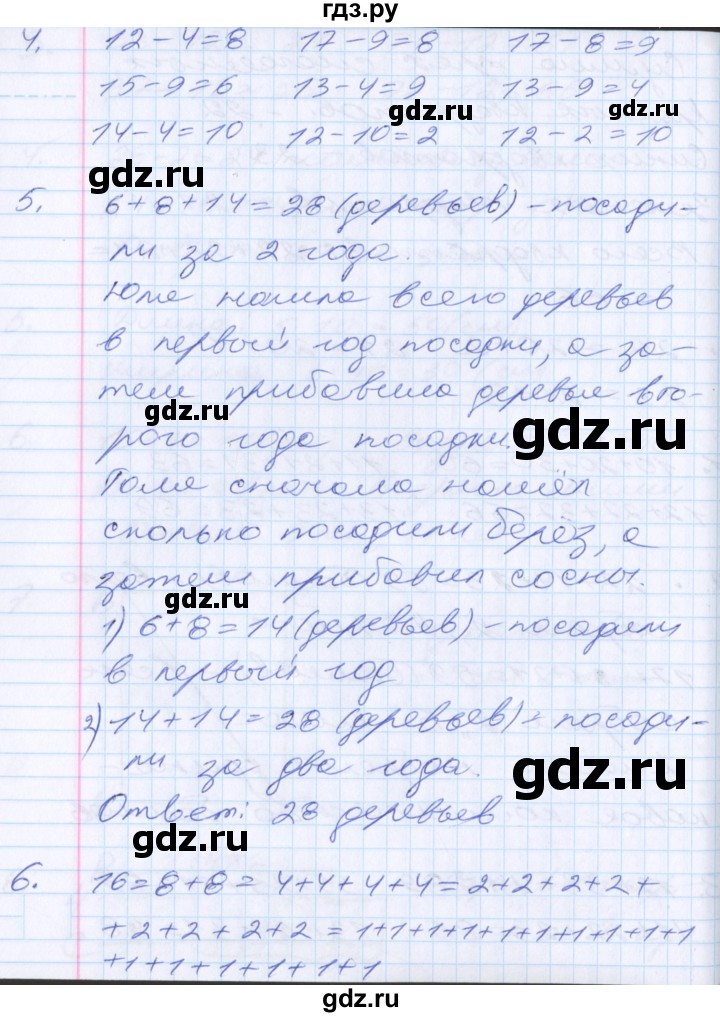 гдз.ру
4. 12-4=8 17-9=8 17-8=9
15-9=6 13-4=9 13-9=4
gdz.ru gdz.ru
14-4=10 12-10=2 12-2=10
gdz.ru
5. 6+8+14=28 (деревьев) - посади-
ли за 2 года.
gdz.ru
Юля нашла всего деревьев
в первый год посадки, а за-
gdz.ru
тем прибавила деревья вто-
gdz.ru
рого года посадки.
gdz.ru
Толя сначала нашёл
сколько посадили берёз, а
затем прибавил сосны.
gdz.ru
1) 6+8=14 (деревьев) - посадили
в первый год
2) 14+14=28 (деревьев) - посади-
ли за два года.
gdz.ru
Ответ: 28 деревьев
gdz.ru
6. 16=8+8=4+4+4+4=2+2+2+2+
+2+2+2+2=1+1+1+1+1+1+1+1+1+1
+1+1+1+1+1+1
gdz.ru
gdz.ru